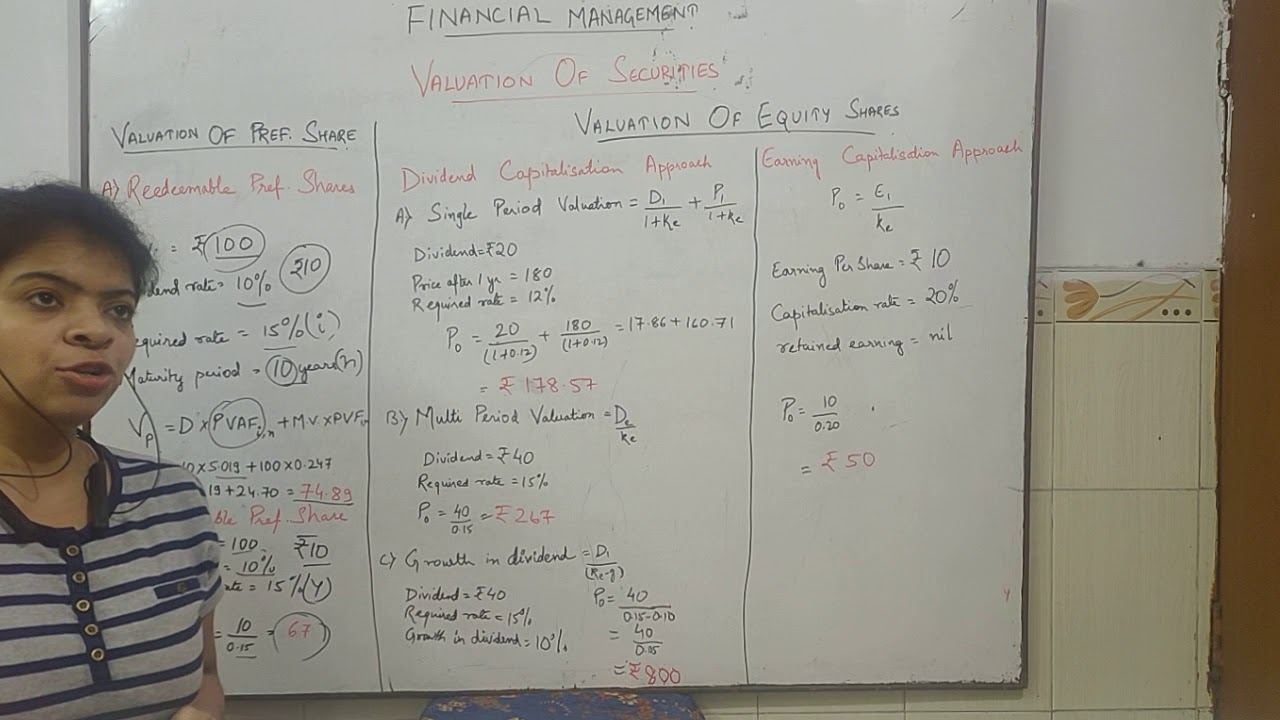 FINANCIAL MANAGEMENT
VALUATION OF SECURITIES
VALUATION OF PREF. SHARE
A) Reedeemable Pref. Shares
= ₹100
rate = 10% ₹10
Required rate = 15% (i)
Maturity period = 10 years (n)
Vp = D × PVAFi,n + M.V. × PVF
10 × 5.019 + 100 × 0.247
19 + 24.70 = 74.89
Pref. Share
= 100 ₹10
= 10%
= 15% (Y)
= 10/0.15 = 67
VALUATION OF EQUITY SHARES
Dividend Capitalisation Approach
A) Single Period Valuation = D1/1+Ke + P1/1+Ke
Dividend = ₹20
Price after 1 yr = 180
Required rate = 12%
P0 = 20/(1+0.12) + 180/(1+0.12) = 17.86 + 160.71
= ₹178.57
B) Multi Period Valuation = De/Ke
Dividend = ₹40
Required rate = 15%
P0 = 40/0.15 = ₹267
C) Growth in dividend = D1/(Ke-g)
Dividend = ₹40
Required rate = 15%
Growth in dividend = 10%
P0 = 40/0.15-0.10
= 40/0.05
= ₹800
Earning Capitalisation Approach
P0 = E1/Ke
Earning Per Share = ₹10
Capitalisation rate = 20%
retained earning = nil
P0 = 10/0.20
= ₹50